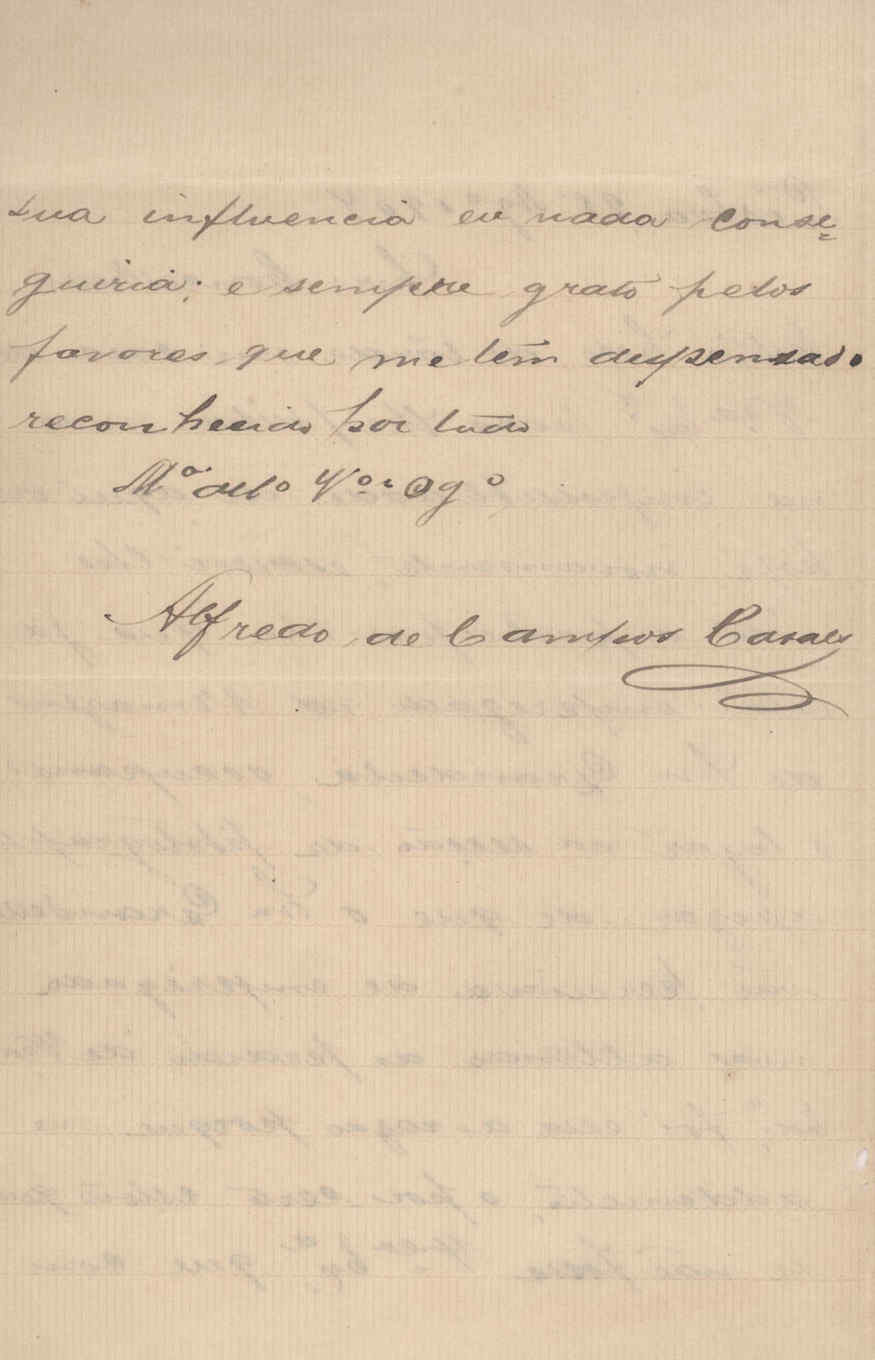 sua influencia eu nada conse=
guiria; e sempre grato pelos
favores que me têm dispensado
reconhecido por tudo
M.º att.º V.or Og.º
Alfredo de Campos Casaes